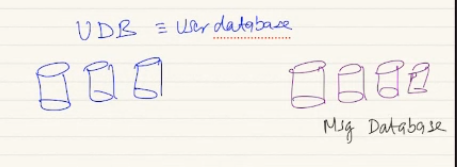 UDB ≡ User database
Msg Database